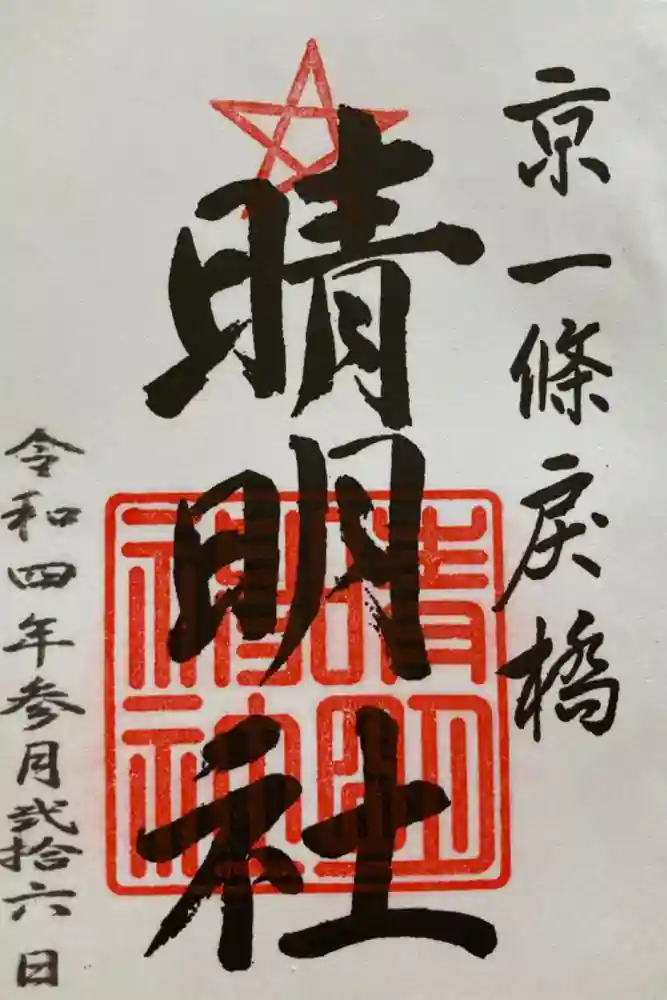 京一條戻橋
晴明社
令和四年参月弐拾六日